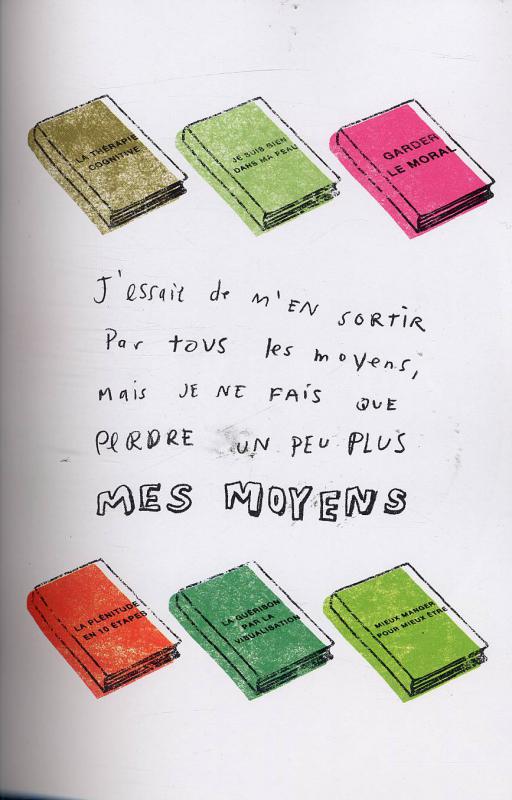 LA THÉRAPIE
COGNITIVE
JE SUIS BIEN
DANS MA PEAU
GARDER
LE MORAL
J'essait de m'EN SORTIR
Par TOUS les moyens,
Mais JE NE FAIS QUE
PERDRE UN PEU PLUS
MES MOYENS
LA PLÉNITUDE
EN 10 ÉTAPES
LA GUÉRISON
PAR LA
VISUALISATION
MIEUX MANGER
POUR MIEUX ÊTRE